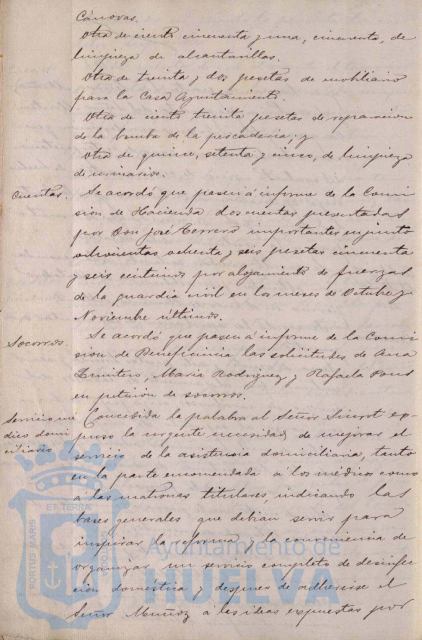 Cánovas.
Otra de ciento cincuenta y una, cincuenta, de
limpieza de alcantarillas.
Otra de treinta y dos pesetas de mobiliario
para la Casa Ayuntamiento.
Otra de ciento treinta pesetas de reparacion
de la bomba de la pescaderia; y
Otra de quince, setenta y cinco, de limpieza
de urinarios.
Cuentas.
Se acordó que pasen á informe de la Comi
sion de Hacienda dos cuentas presentadas
por Don José Cerrero importantes en junto
ochocientas ochenta y seis pesetas cincuenta
y seis centimos por alojamiento de fuerzas
de la guardia civil en los meses de Octubre y
Noviembre últimos.
Socorros.
Se acordó que pasen á informe de la Comi
sion de Beneficencia las solicitudes de Ana
Maria Rodriguez y Rafaela Pons
en peticion de socorros.
Servicio me
dico domi
ciliario
Concedida la palabra al Señor ex
puso la urgente necesidad de mejorar el
servicio de la asistencia domiciliaria, tanto
en la parte encomendada á los médicos como
á las matronas titulares, indicando las
bases generales que debian servir para
inspirar la reforma y la conveniencia de
organizar un servicio completo de desinfec
cion doméstica y despues de adherirse el
Señor Muñoz á las ideas expuestas por
PORTUS MARIS
ET TERRÆ
Ayuntamiento de
HUELVA